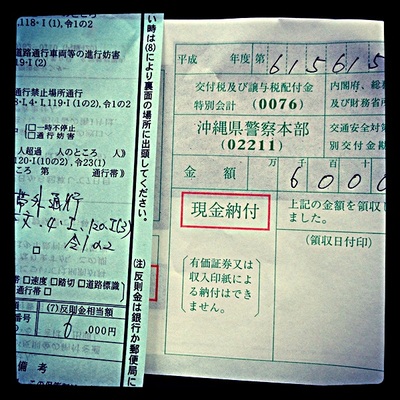 .118・I(1),令1の2
道路通行車両等の進行妨害
19・I(2)
通行禁止場所通行
8・I,4・I,119・I(1の2),令1の2
□一時不停止
□通行妨害
人超過 人のところ 人》
120・I(10の2),令23(1)
ところ 第 通行帯》
帯外通行
4・I, 120・I(3)
令1の2
□速度 □踏切 □道路標識
通行帯 □
(7)反則金相当額
番号 6,000円
備考
い時は(8)により裏面の場所に出頭してください。
(注)反則金は銀行か郵便局に
平成 年度 第 615615
交付税及び譲与税配付金
特別会計 (0076)
内閣府、総
及び財務省
沖縄県警察本部
(02211)
交通安全対
別交付金
金額 万 千 百 十
6000
現金納付
上記の金額を領収し
ました。
(領収日付印)
有価証券又は
収入印紙によ
る納付はでき
ません。